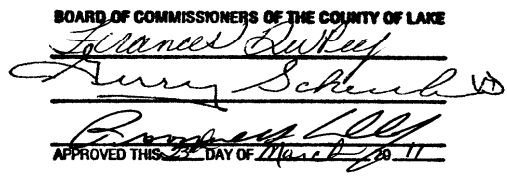 BOARD OF COMMISSIONERS OF THE COUNTY OF LAKE
Frances DuPey
Gerry Scheub
APPROVED THIS 23rd DAY OF March 20 11